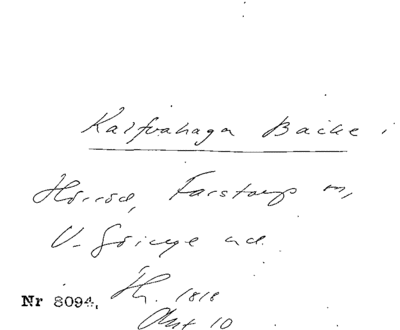 Kalfvahaga Backe i
Hörröd, Farstorp sn,
V. Göinge hd.
Nr 8094. 1818
Akt 10